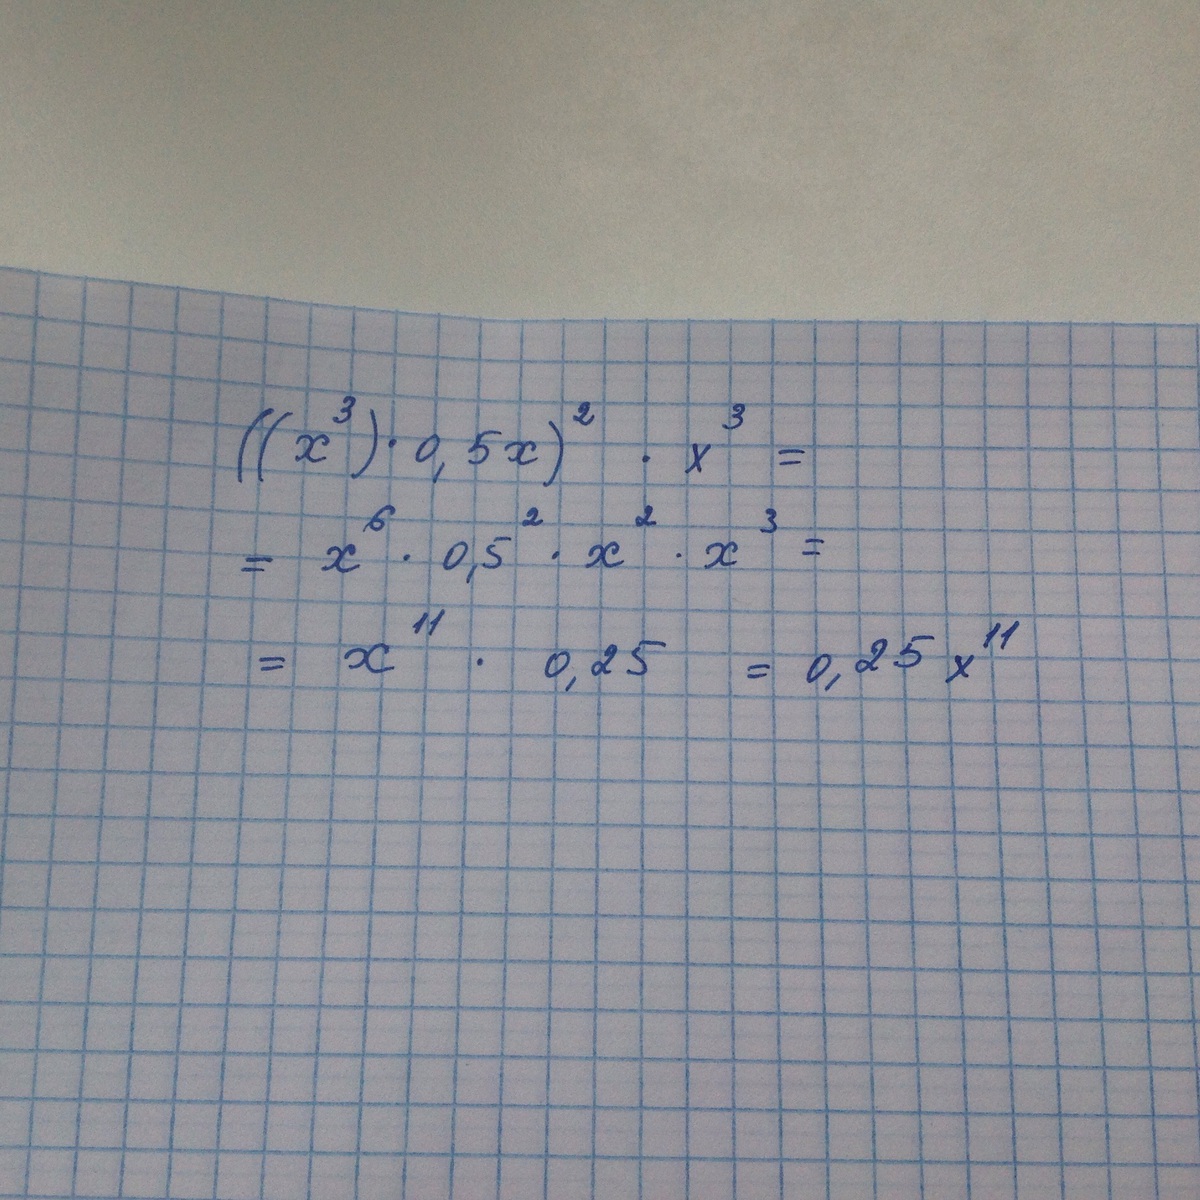 ((x³)·0,5x)² · x³ =
= x⁶ · 0,5² · x² · x³ =
= x¹¹ · 0,25 = 0,25x¹¹